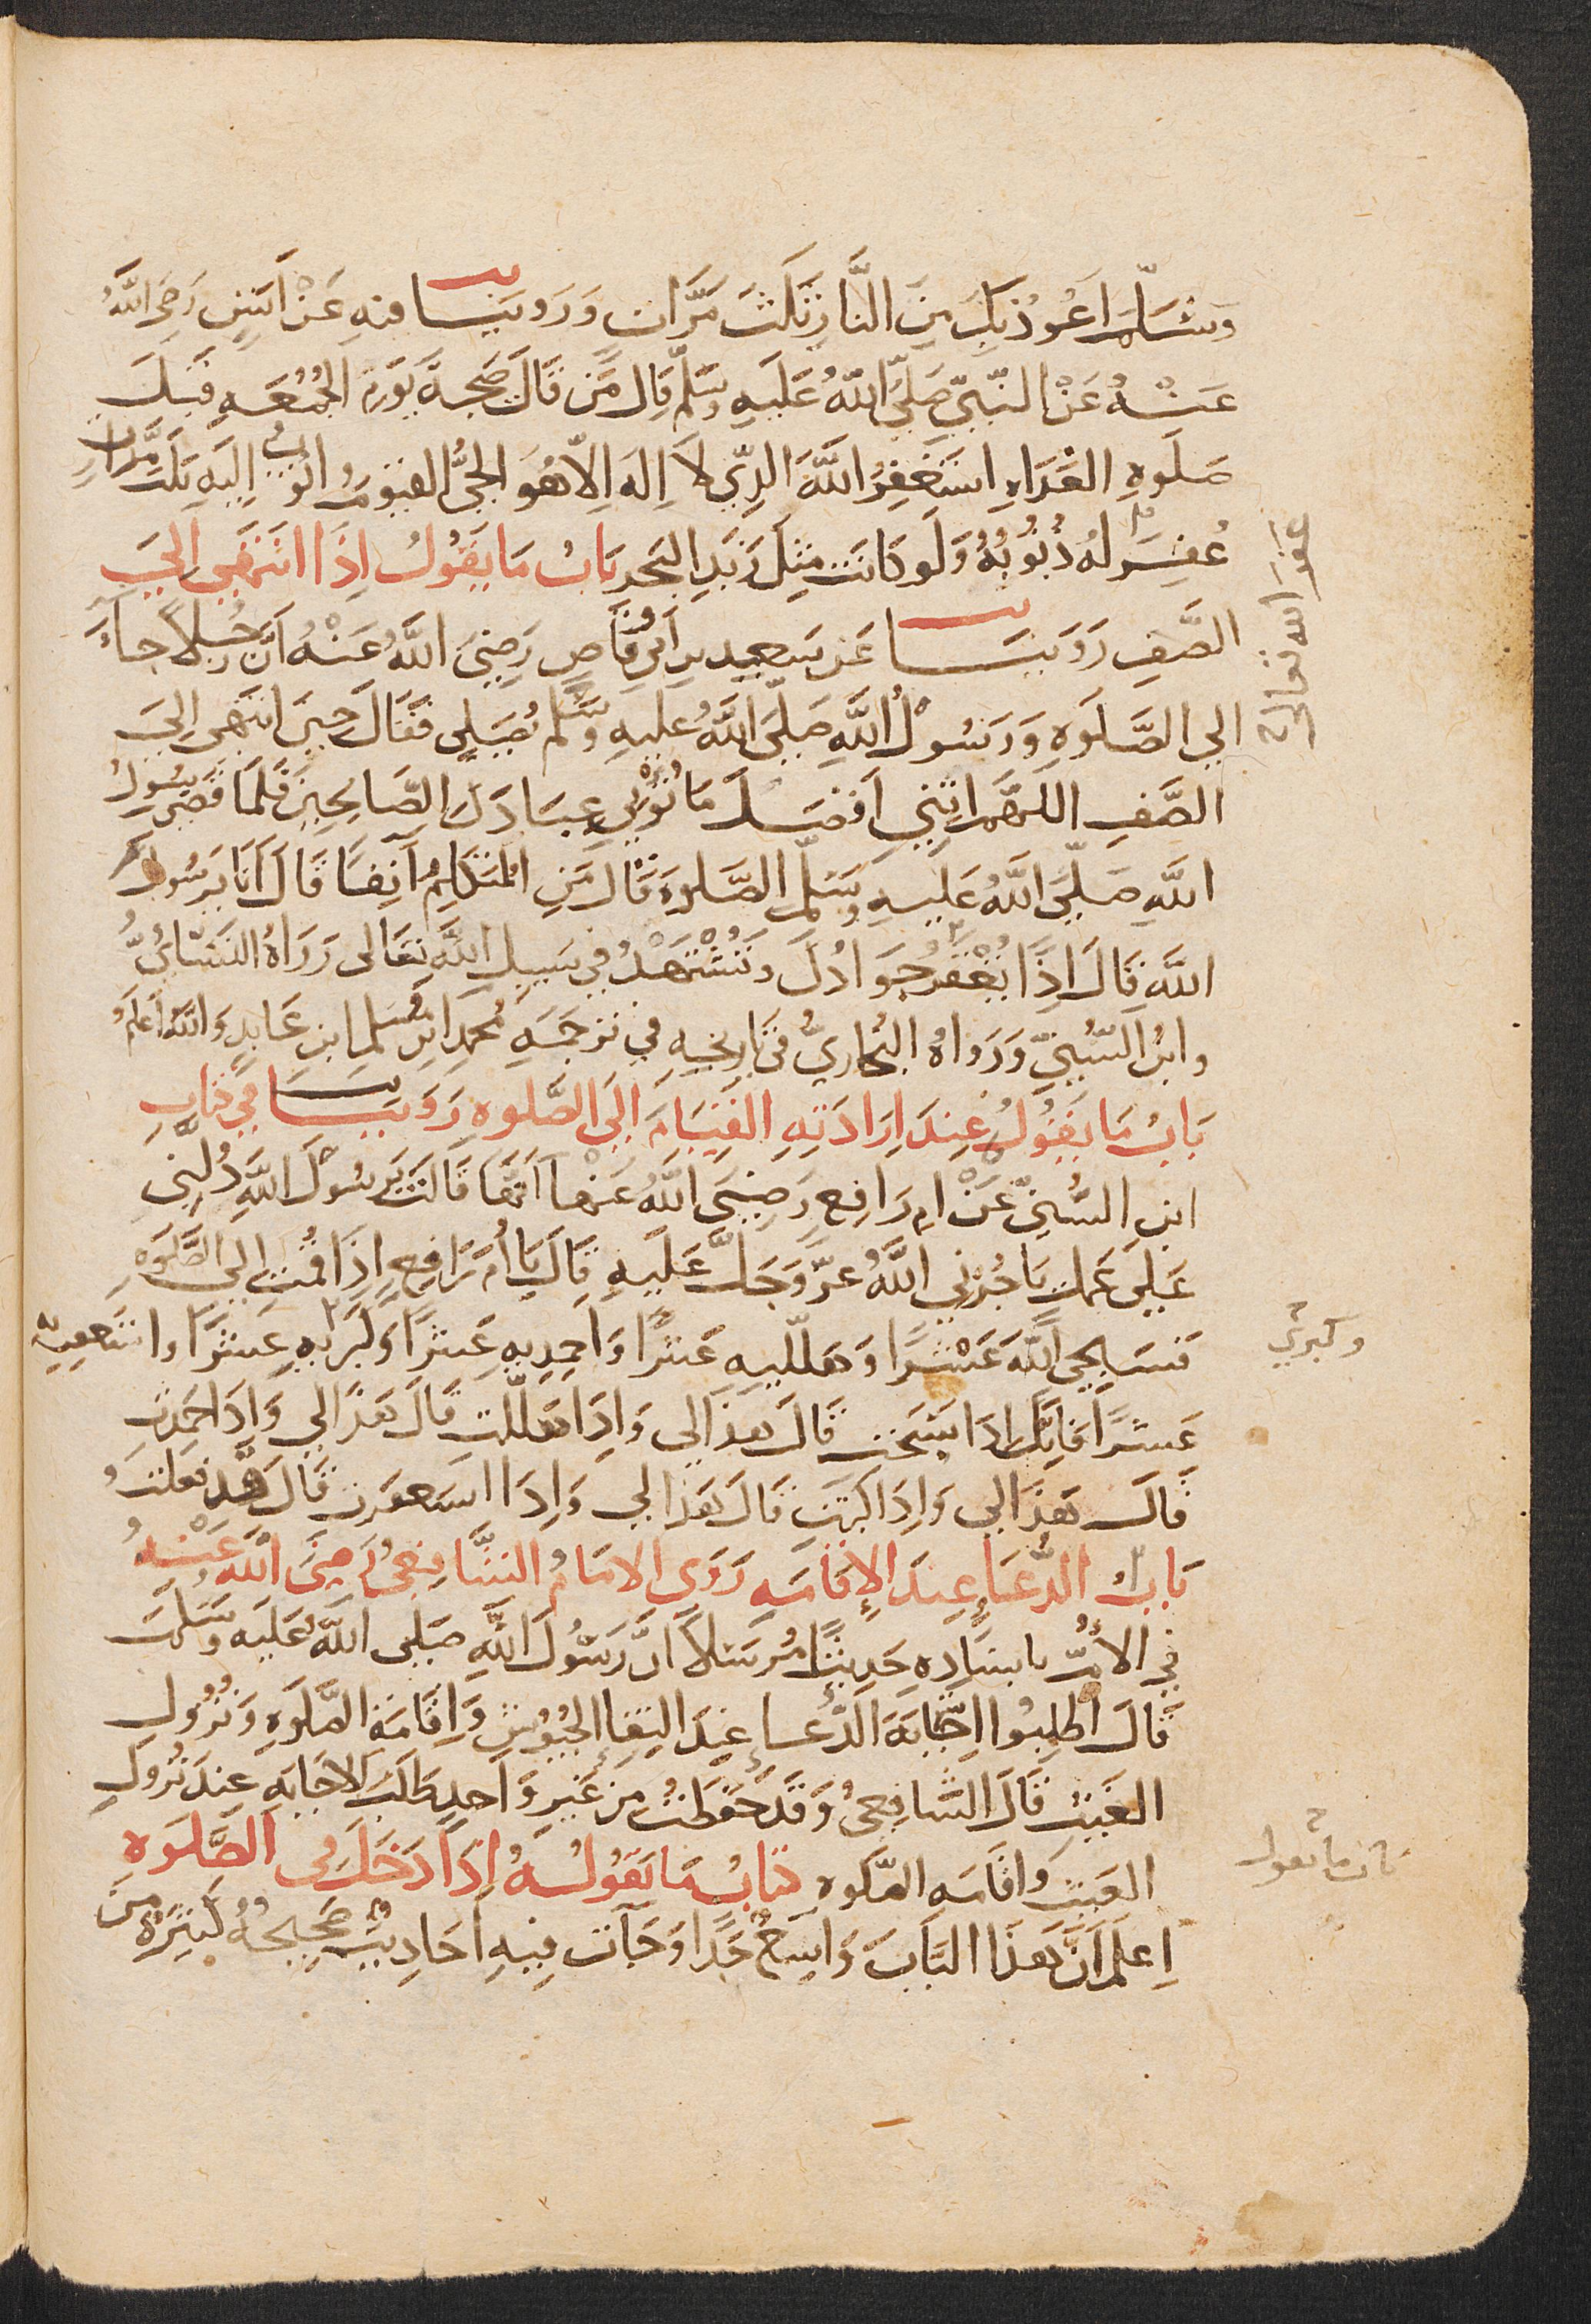 وَسَلَّمَ اَعُوذُ بِكَ مِنَ النَّارِ ثَلَثَ مَرَّاتٍ وَرَوينَا فيهِ عَنْ اَنَسٍ رَضِيَ اللَّهُ
عَنْهُ عَنْ النَّبِيِّ صَلَّى اللَّهُ عَلَيهِ وسَلَّم قَالَ مَن قَالَ صَبيحَةَ يَومِ الجُمُعَهِ قَبلَ
صَلَوةِ الغَدَاهِ اَستَغفِرُ اللَّهَ الذِّي لاَ اِلَهَ اِلاّ هُوَ الحَيُّ القَيّومُ واتُوبُ اِلَيهِ ثَلَثَ مَرَّاتٍ
غُفِرَ لهُ ذُنُوبُهُ وَلَو كَانَت مِثلَ زَبَدِ البَحرِ بَابُ مَا يَقُولُ اِذَا انتَهَى اِلَى
الصَّفِ رَوَينَا عَن سَعِيدِ بنِ اَبي وقَّاصٍ رَضِيَ اللَّهُ عَنْهُ اَنَّ رَجُلاً جاءَ
الي الصَّلَوةِ وَرَسُولُ اللَّهِ صَلَّى اللَّهُ عَليهِ وسَلّم يُصَلِي فَقَالَ حِينَ انتَهَى اِلَى
الصَّفِ اللَّهُمَّ اتِنِي اَفضَلَ مَا تُؤْتي عِبَادَكَ الصَّالِحِينَ فَلَمّا قَضَى رسُولُ
اللَّهِ صَلَّى اللَّهُ عَلَيهِ وسَلَّم الصَّلوةَ قَالَ مَنِ المُتَكَلِمُ آنِفًا قَالَ اَنَا يَرسُولَ
اللَّهِ قَالَ اِذًا يُعْقَرُ جَوَادُكَ وتُسْتَشْهَدُ في سَبِيلِ اللَّهِ تعَالى رَوَاهُ النَسَائيُّ
وابنُ السُّنِيِّ وَرَوَاهُ البُخَارِيُّ في تَارِيخِهِ في تَرجَمَهِ مُحَمدِ ابنِ مُسلِمِ ابنِ عَايذٍ وَاللهُ اَعلَمُ
بَابُ مَا يَقُولُ عِندَ اِرَادَتِهِ القِيَامَ اِلَى الصَّلوةِ رَوَينَا في كتابِ
ابنِ السُّنيّ عَنْ امِ رَافِعٍ رَضِيَ اللَّهُ عَنْهَا اَنَّهَا قَالَتْ يَرسُولَ اللَّهِ دُلَّنِي
عَلَى عَمَلٍ يَاجُرُنِي اللَّهُ عَزّ وَجَلَّ عَلَيهِ قَالَ يَا اُمَ رَافِعٍ اِذَا قُمتِ الي الصَّلَوةِ
فَسَبِّحِي اللَّهَ عَشْرًا وَهَللِيهِ عَشرًا وَاحمِدِيهِ عَشرًا وَكَبِريهِ عَشرًا واستَغفِرِيهِ
عَشرًا فَاِنَّكِ اِذَا سَبَّحتِ قَالَ هَذَا لي وَاِذَا هَلّلتِ قَالَ هَذَا لي وَاِذَا حَمِدتِ
قَالَ هَذَا لي وَاِذَا كَبَّرتِ قَالَ هَذَا لي وَاِذَا استَغفَرتِ قَالَ قَد فعَلتُ
بَابُ الدُّعَاءِ عِندَ الاِقَامَهِ رَوَى الامَامُ الشَّافِعِيُّ رَضِيَ اللَّهُ عَنْهُ
في الاُمِّ باِسنَادِهِ حَديثًا مُرسَلاً اَنَّ رَسُولَ اللَّهِ صَلى اللَّهُ عَلَيهِ وسَلَّمَ
قَالَ اُطلِبُوا اِجَابَةَ الدُّعَاءِ عِندَ التِقَاءِ الجُيُوشِ وَاِقَامَةِ الصَّلَوةِ وَنُزُولِ
الغَيثِ قَالَ الشَّافِعِيُّ وَقَد حَفِظتُ مِن غَيرِ وَاحِدٍ طَلَبَ الاجَابَهِ عِندَ نُزُولِ
الغَيثِ واِقَامَهِ الصَّلوةِ كتابُ مَا يَقُولُهُ اِذَا دَخَلَ في الصَّلَوةِ
اِعلَم اَنَّ هَذَا البَابَ وَاسِعٌ جِدًّا وَجَآت فِيهِ اَحَادِيثُ صَحِيحَةٌ كَثِيرَةٌ مِن
غفر الله تعالى
وكبري
باب ما يقول